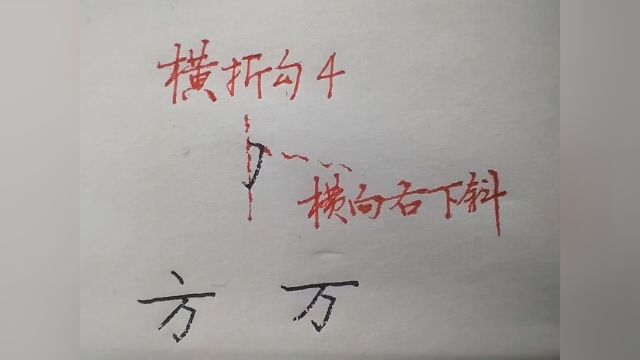 横折勾4
横向右下斜
方 万